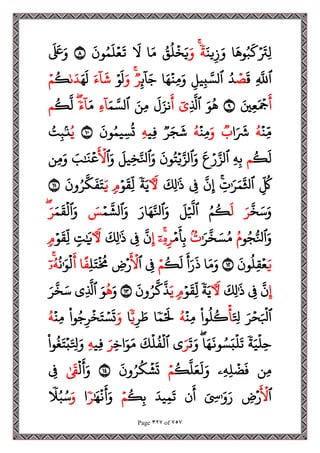 لِتَرْكَبُوهَا وَزِينَةً ۚ وَيَخْلُقُ مَا لَا تَعْلَمُونَ ٨ وَعَلَى
ٱللَّهِ قَصْدُ ٱلسَّبِيلِ وَمِنْهَا جَآئِرٌ ۚ وَلَوْ شَآءَ لَهَدَىٰكُمْ
أَجْمَعِينَ ٩ هُوَ ٱلَّذِىٓ أَنزَلَ مِنَ ٱلسَّمَآءِ مَآءً ۖ لَّكُم
مِّنْهُ شَرَابٌ وَمِنْهُ شَجَرٌ فِيهِ تُسِيمُونَ ١٠ يُنۢبِتُ
لَكُم بِهِ ٱلزَّرْعَ وَٱلزَّيْتُونَ وَٱلنَّخِيلَ وَٱلْأَعْنَـٰبَ وَمِن
كُلِّ ٱلثَّمَرَٰتِ ۗ إِنَّ فِى ذَٰلِكَ لَـَٔايَةً لِّقَوْمٍ يَتَفَكَّرُونَ ١١
وَسَخَّرَ لَكُمُ ٱلَّيْلَ وَٱلنَّهَارَ وَٱلشَّمْسَ وَٱلْقَمَرَ ۖ
وَٱلنُّجُومُ مُسَخَّرَٰتٌۢ بِأَمْرِهِۦٓ ۗ إِنَّ فِى ذَٰلِكَ لَـَٔايَـٰتٍ لِّقَوْمٍ
يَعْقِلُونَ ١٢ وَمَا ذَرَأَ لَكُمْ فِى ٱلْأَرْضِ مُخْتَلِفًا أَلْوَٰنُهُۥٓ ۗ
إِنَّ فِى ذَٰلِكَ لَـَٔايَةً لِّقَوْمٍ يَذَّكَّرُونَ ١٣ وَهُوَ ٱلَّذِى سَخَّرَ
ٱلْبَحْرَ لِتَأْكُلُوا۟ مِنْهُ لَحْمًا طَرِيًّا وَتَسْتَخْرِجُوا۟ مِنْهُ
حِلْيَةً تَلْبَسُونَهَا وَتَرَى ٱلْفُلْكَ مَوَاخِرَ فِيهِ وَلِتَبْتَغُوا۟
مِن فَضْلِهِۦ وَلَعَلَّكُمْ تَشْكُرُونَ ١٤ وَأَلْقَىٰ فِى
ٱلْأَرْضِ رَوَٰسِىَ أَن تَمِيدَ بِكُمْ وَأَنْهَـٰرًا وَسُبُلًا
Page ٣٢٧ of ٧٥٧